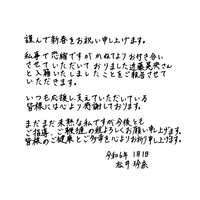 謹んで新春をお祝い申し上げます。
私事で恐縮ですが かねてよりお付き合い
させていただいて おりました遠藤英央さん
と入籍いたしましたことをご報告させて
いただきます。
いつも応援し支えていただいている
皆様には心より感謝しております。
まだまだ未熟な私ですが今後とも
ご指導、ご鞭撻の程よろしくお願い申し上げます。
皆様のご健康とご多幸を心よりお祈り申し上げます。
令和6年 1月1日
松井 珍